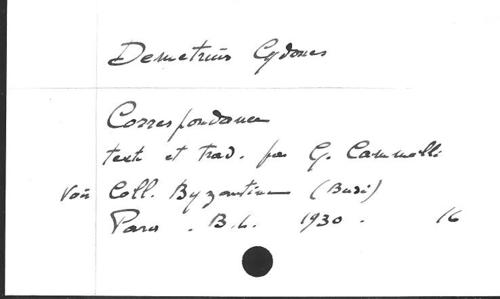 Demetrius Cydones
Correspondance
texte et trad. par G. Cammelli
Voir Coll. Byzantine (Budé)
Paris . B.L. 1930 . 16